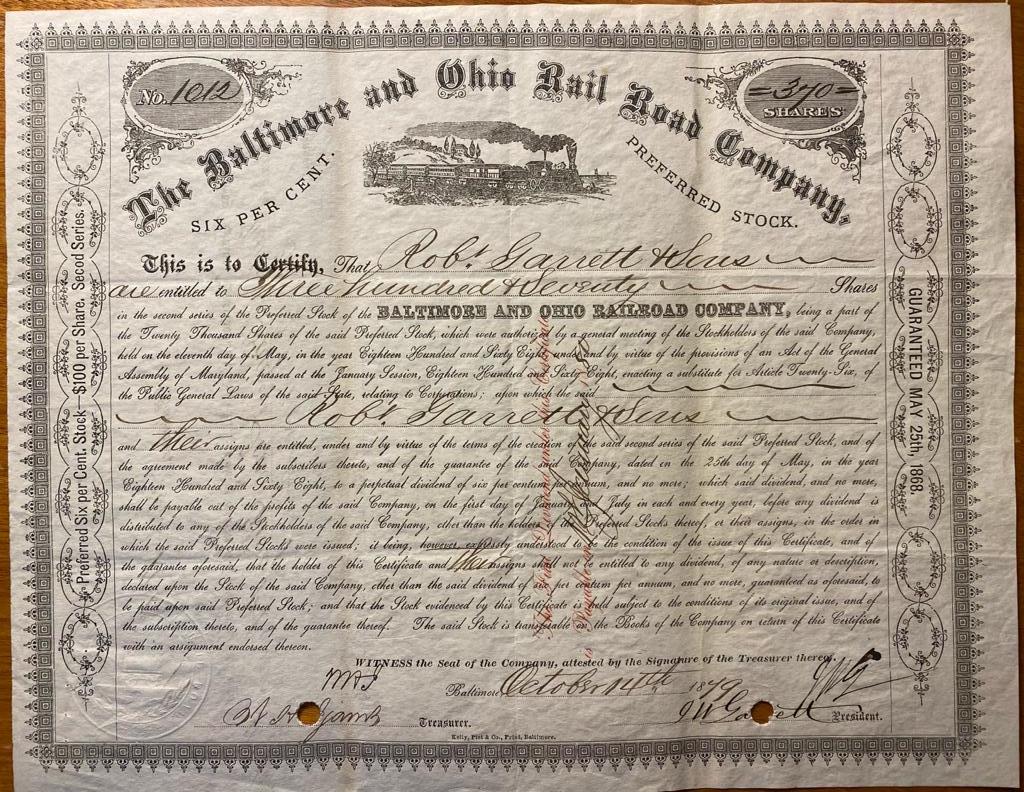 No. 1012
=370=
SHARES
The Baltimore and Ohio Rail Road Company.
SIX PER CENT. PREFERRED STOCK.
This is to Certify, That Robt. Garrett & Sons
are entitled to Three hundred & Seventy Shares
in the second series of the Preferred Stock of the BALTIMORE AND OHIO RAILROAD COMPANY, being a part of the
Twenty Thousand Shares of the said Preferred Stock, which were authorized by a general meeting of the Stockholders of the said Company,
held on the eleventh day of May, in the year Eighteen Hundred and Sixty Eight, under and by virtue of the provisions of an Act of the General
Assembly of Maryland, passed at the January Session, Eighteen Hundred and Sixty Eight, enacting a substitute for Article Twenty-Six, of
the Public General Laws of the said State, relating to Corporations; upon which the said
Robt. Garrett & Sons
and their assigns are entitled, under and by virtue of the terms of the creation of the said second series of the said Preferred Stock, and of
the agreement made by the subscribers thereto, and of the guarantee of the said Company, dated on the 25th day of May, in the year
Eighteen Hundred and Sixty Eight, to a perpetual dividend of six per centum per annum, and no more; which said dividend, and no more,
shall be payable out of the profits of the said Company, on the first day of January and July in each and every year, before any dividend is
distributed to any of the Stockholders of the said Company, other than the holders of the Preferred Stocks thereof, or their assigns, in the order in
which the said Preferred Stocks were issued; it being, however expressly understood to be the condition of the issue of this Certificate, and of
the guarantee aforesaid, that the holder of this Certificate and their assigns shall not be entitled to any dividend, of any nature or description,
declared upon the Stock of the said Company, other than the said dividend of six per centum per annum, and no more, guaranteed as aforesaid, to
be paid upon said Preferred Stock; and that the Stock evidenced by this Certificate is held subject to the conditions of its original issue, and of
the subscription thereto, and of the guarantee thereof. The said Stock is transferable on the Books of the Company on return of this Certificate
with an assignment endorsed thereon.
WITNESS the Seal of the Company, attested by the Signature of the Treasurer thereof.
Baltimore October 14th 1879
Treasurer.
J W Garrett President.
Kelly, Piet & Co., Print, Baltimore.
Preferred Six per Cent. Stock $100 per Share. Secod Series.
GUARANTEED MAY 25th, 1868.